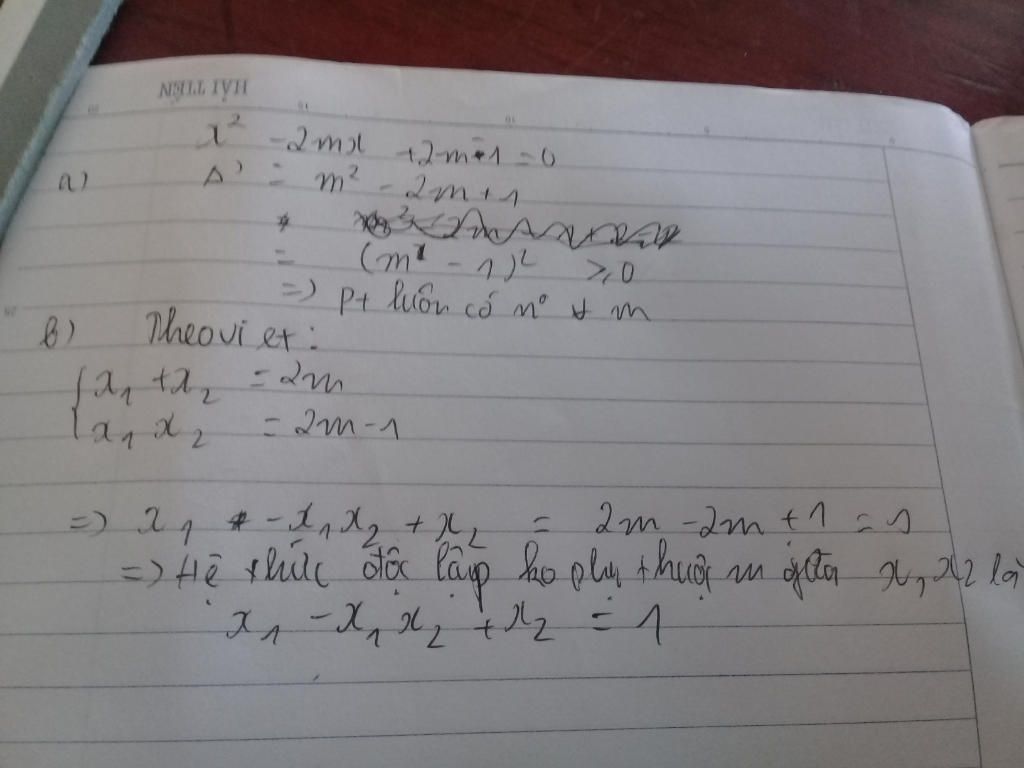 HẢI TIẾN
x² - 2mx + 2m - 1 = 0
a) Δ' = m² - 2m + 1
= (m - 1)² ≥ 0
=> pt luôn có n⁰ ∀ m
b) Theo vi et:
{ x₁ + x₂ = 2m
x₁ x₂ = 2m - 1
=> x₁ - x₁x₂ + x₂ = 2m - 2m + 1 = 1
=> Hệ thức độc lập ko phụ thuộc m giữa x₁ x₂ là
x₁ - x₁x₂ + x₂ = 1